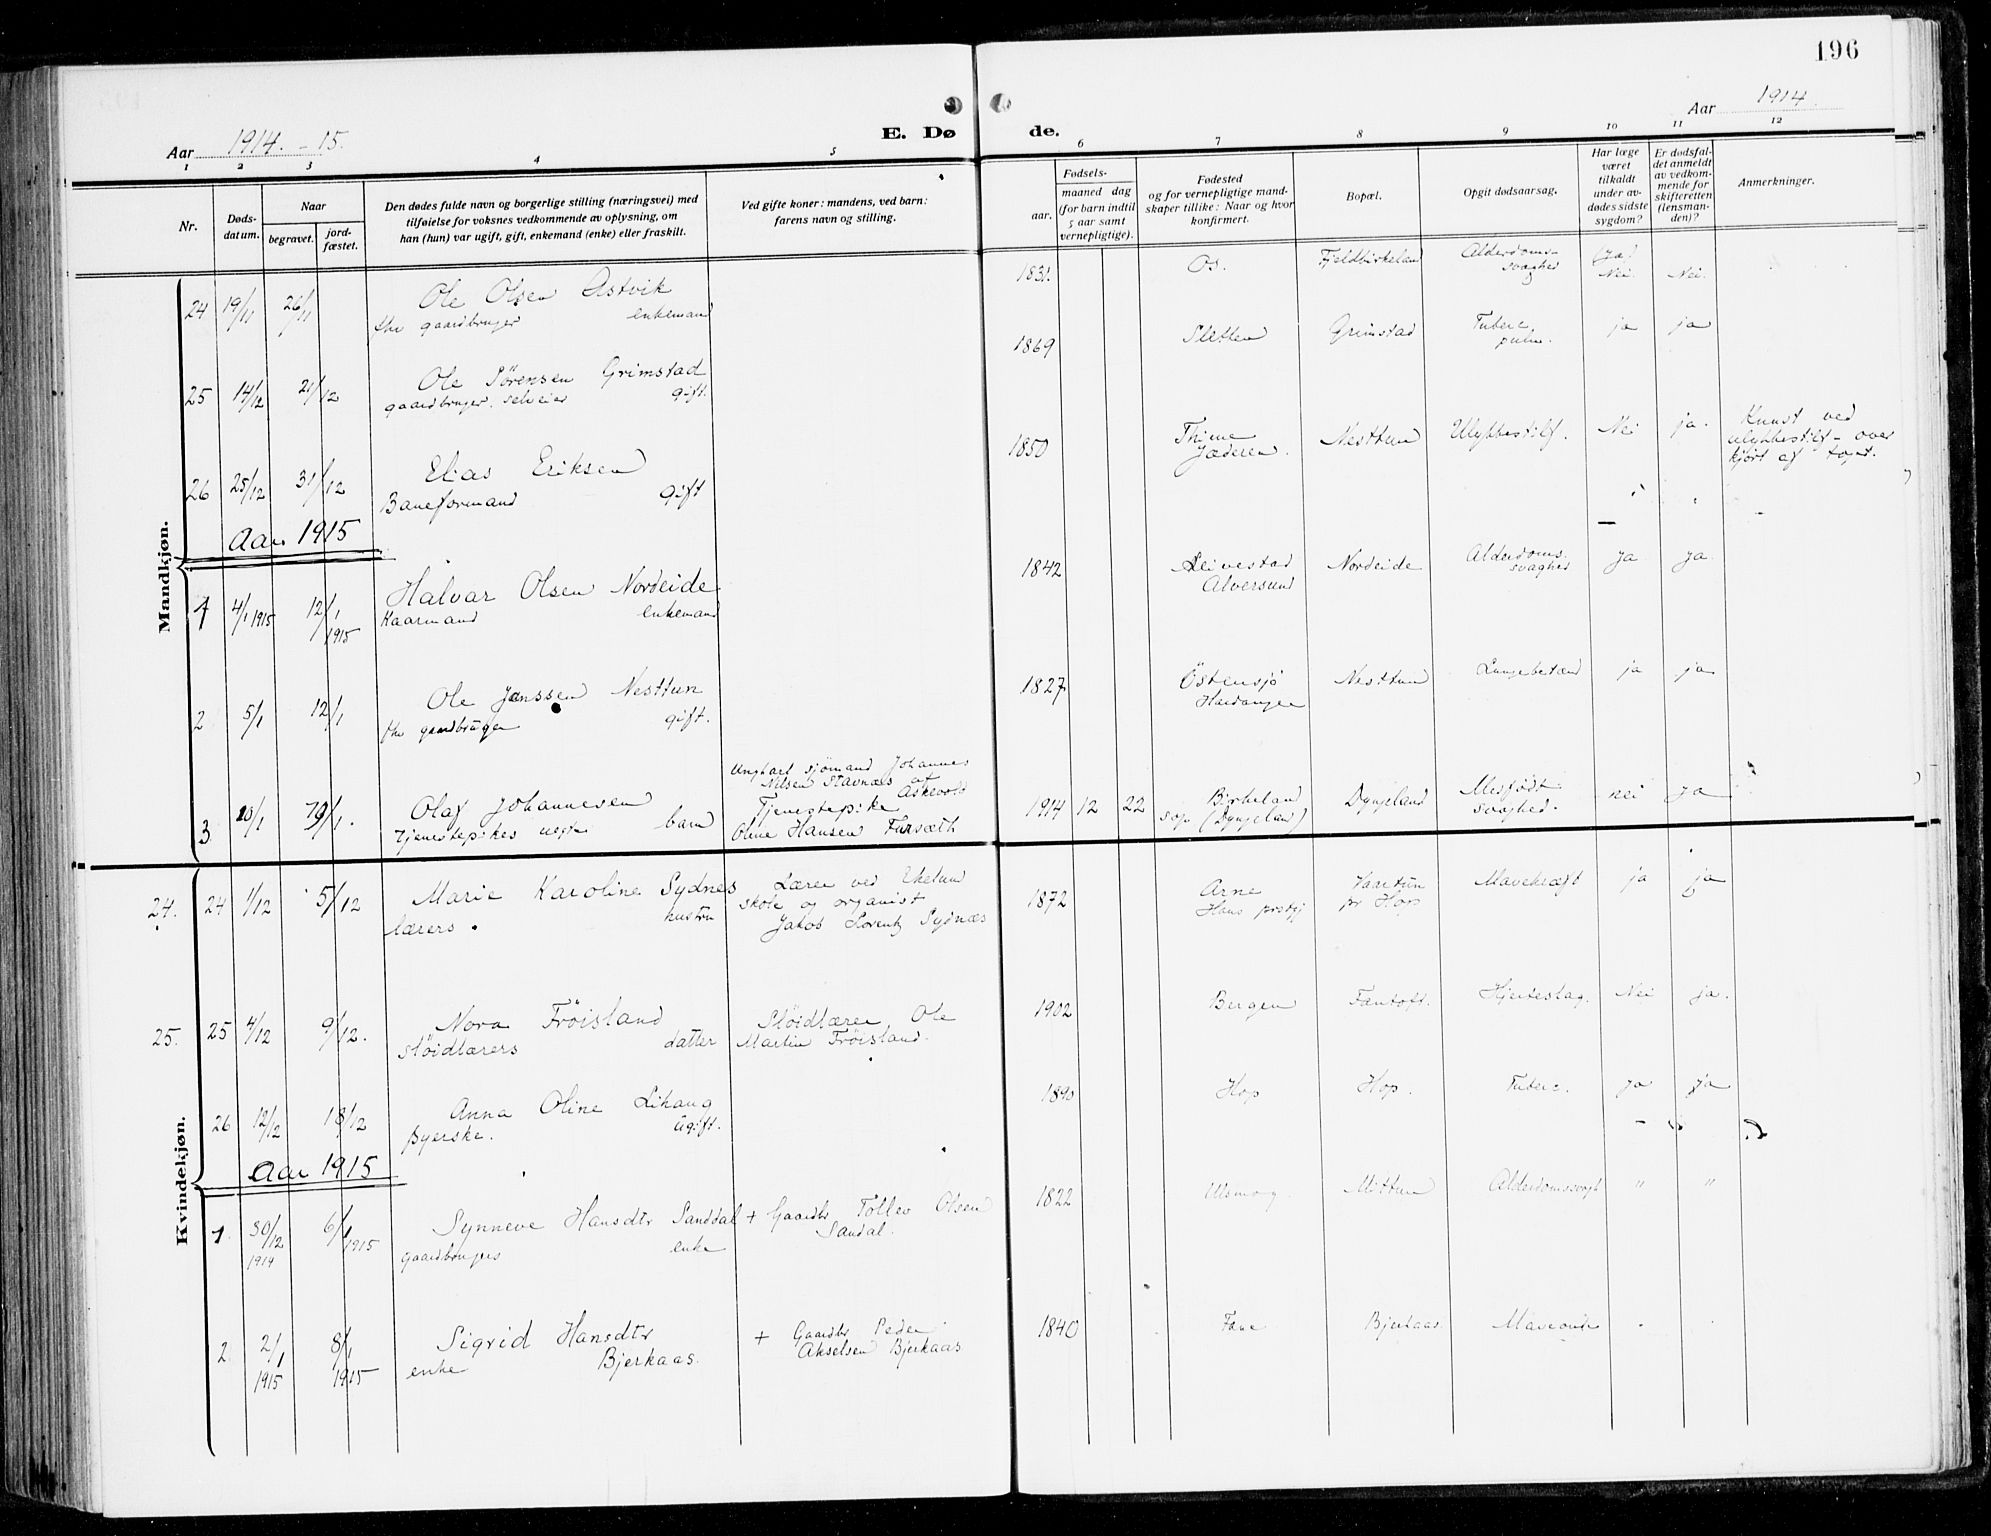 196
Aar 1914. - 15.
E. Dø
de.
Aar 1914.
1 2 3 4 5 6 7 8 9 10 11 12
Nr.
Døds-
datum.
Naar
begravet.
jord-
fæstet.
Den dødes fulde navn og borgerlige stilling (næringsvei) med
tilføielse for voksnes vedkommende av oplysning, om
han (hun) var ugift, gift, enkemand (enke) eller fraskilt.
Ved gifte koner: mandens, ved barn:
farens navn og stilling.
Fødsels-
aar.
maaned dag
(for barn indtil
5 aar samt
vernepligtige).
Fødested
og for vernepligtige mand-
skaper tillike: Naar og hvor
konfirmert.
Bopæl.
Opgit dødsaarsag.
Har læge
været
tilkaldt
under av-
dødes sidste
sygdom?
Er dødsfal-
det anmeldt
av vedkom-
mende for
skifteretten
(lensman-
den)?
Anmerkninger.
Mandkjøn.
24 19/11 26/11 Ole Olsen Østvik
fhv gaardbruger enkemand
1831. Os. Fjeldbirkeland Alderdoms-
svaghed (ja)
Nei. Nei.
25 14/12 21/12 Ole Sörensen Grimstad
gaardbruger, selveier gift.
1869 Sletten Grimstad Tuberc.
pulm. ja ja
26 25/12 31/12 Elias Eriksen
Baneformand gift
1850 Thime
Jæderen. Nesttun Ulykkestilf. Nei ja.
Kunst ved
ulykkestilf - over
kjört af toget.
Aar 1915
1 4/1 1915 12/1 1915 Halvar Olsen Nordeide
Kaarmand enkemand
1842 Leivestad
Alversund Nordeide Alderdoms-
svaghed Ja Ja
2 5/1 12/1 Ole Janssen Nesttun
fhv gaardbruger gift.
1827 Östensjö
Hardanger Nesttun Lungebetænd ja ja
3 10/1 19/1. Olaf Johannesen
Tjenestepikes uegte barn
Ungkarl sjömand Johannes
Nilsen Stavnæs af
Askevold
Tjenestepike
Oline Hansen Fursæth
1914 12 22 Birkeland
sogn (Dyngeland) Dyngeland Medfødt
svaghed. nei Ja
Kvindekjøn.
24. 24 1/12 5/12 Marie Karoline Sydnes
lærers hustru
Lærer ved Ekelund
skole og organist
Jakob Lorentz Sydnæs
1872 Arne
Haus prstgj
pr Hop Mavekræft ja ja
25. 25 4/12 9/12. Nora Fröisland
slöidlærers datter
Slöidlærer Ole
Martin Fröisland.
1902 Bergen Fantoft. Hjerteslag. Nei ja.
26 12/12 18/12 Anna Oline Lihaug
Syerske. Ugift.
1890 Hop Hop. Tuberc. Ja Ja
Aar 1915
1. 30/12 1914 6/1 1915 Synneve Hansdtr Sanddal
gaardbrugers enke
+ Gaardbr Tollev Olsen
Sandal.
1822 Ulsmog. Mittun Alderdomssvagh " "
2 2/1 1915 8/1 1915 Sigrid Hansdtr
enke Bjerkaas.
+ Gaardbr Peder
Akselsen Bjerkaas
1840 Fane Bjerkaas Maveonde . .